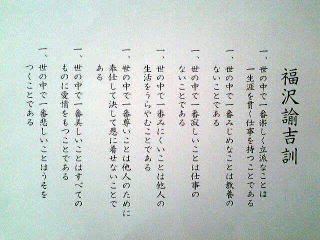 福沢諭吉訓
一、世の中で一番楽しく立派なことは
一生涯を貫く仕事を持つことである
一、世の中で一番みじめなことは教養の
ないことである
一、世の中で一番寂しいことは仕事の
ないことである
一、世の中で一番みにくいことは他人の
生活をうらやむことである
一、世の中で一番尊いことは他人のために
奉仕して決して恩に着せないことで
ある
一、世の中で一番美しいことはすべての
ものに愛情をもつことである
一、世の中で一番悲しいことはうそを
つくことである